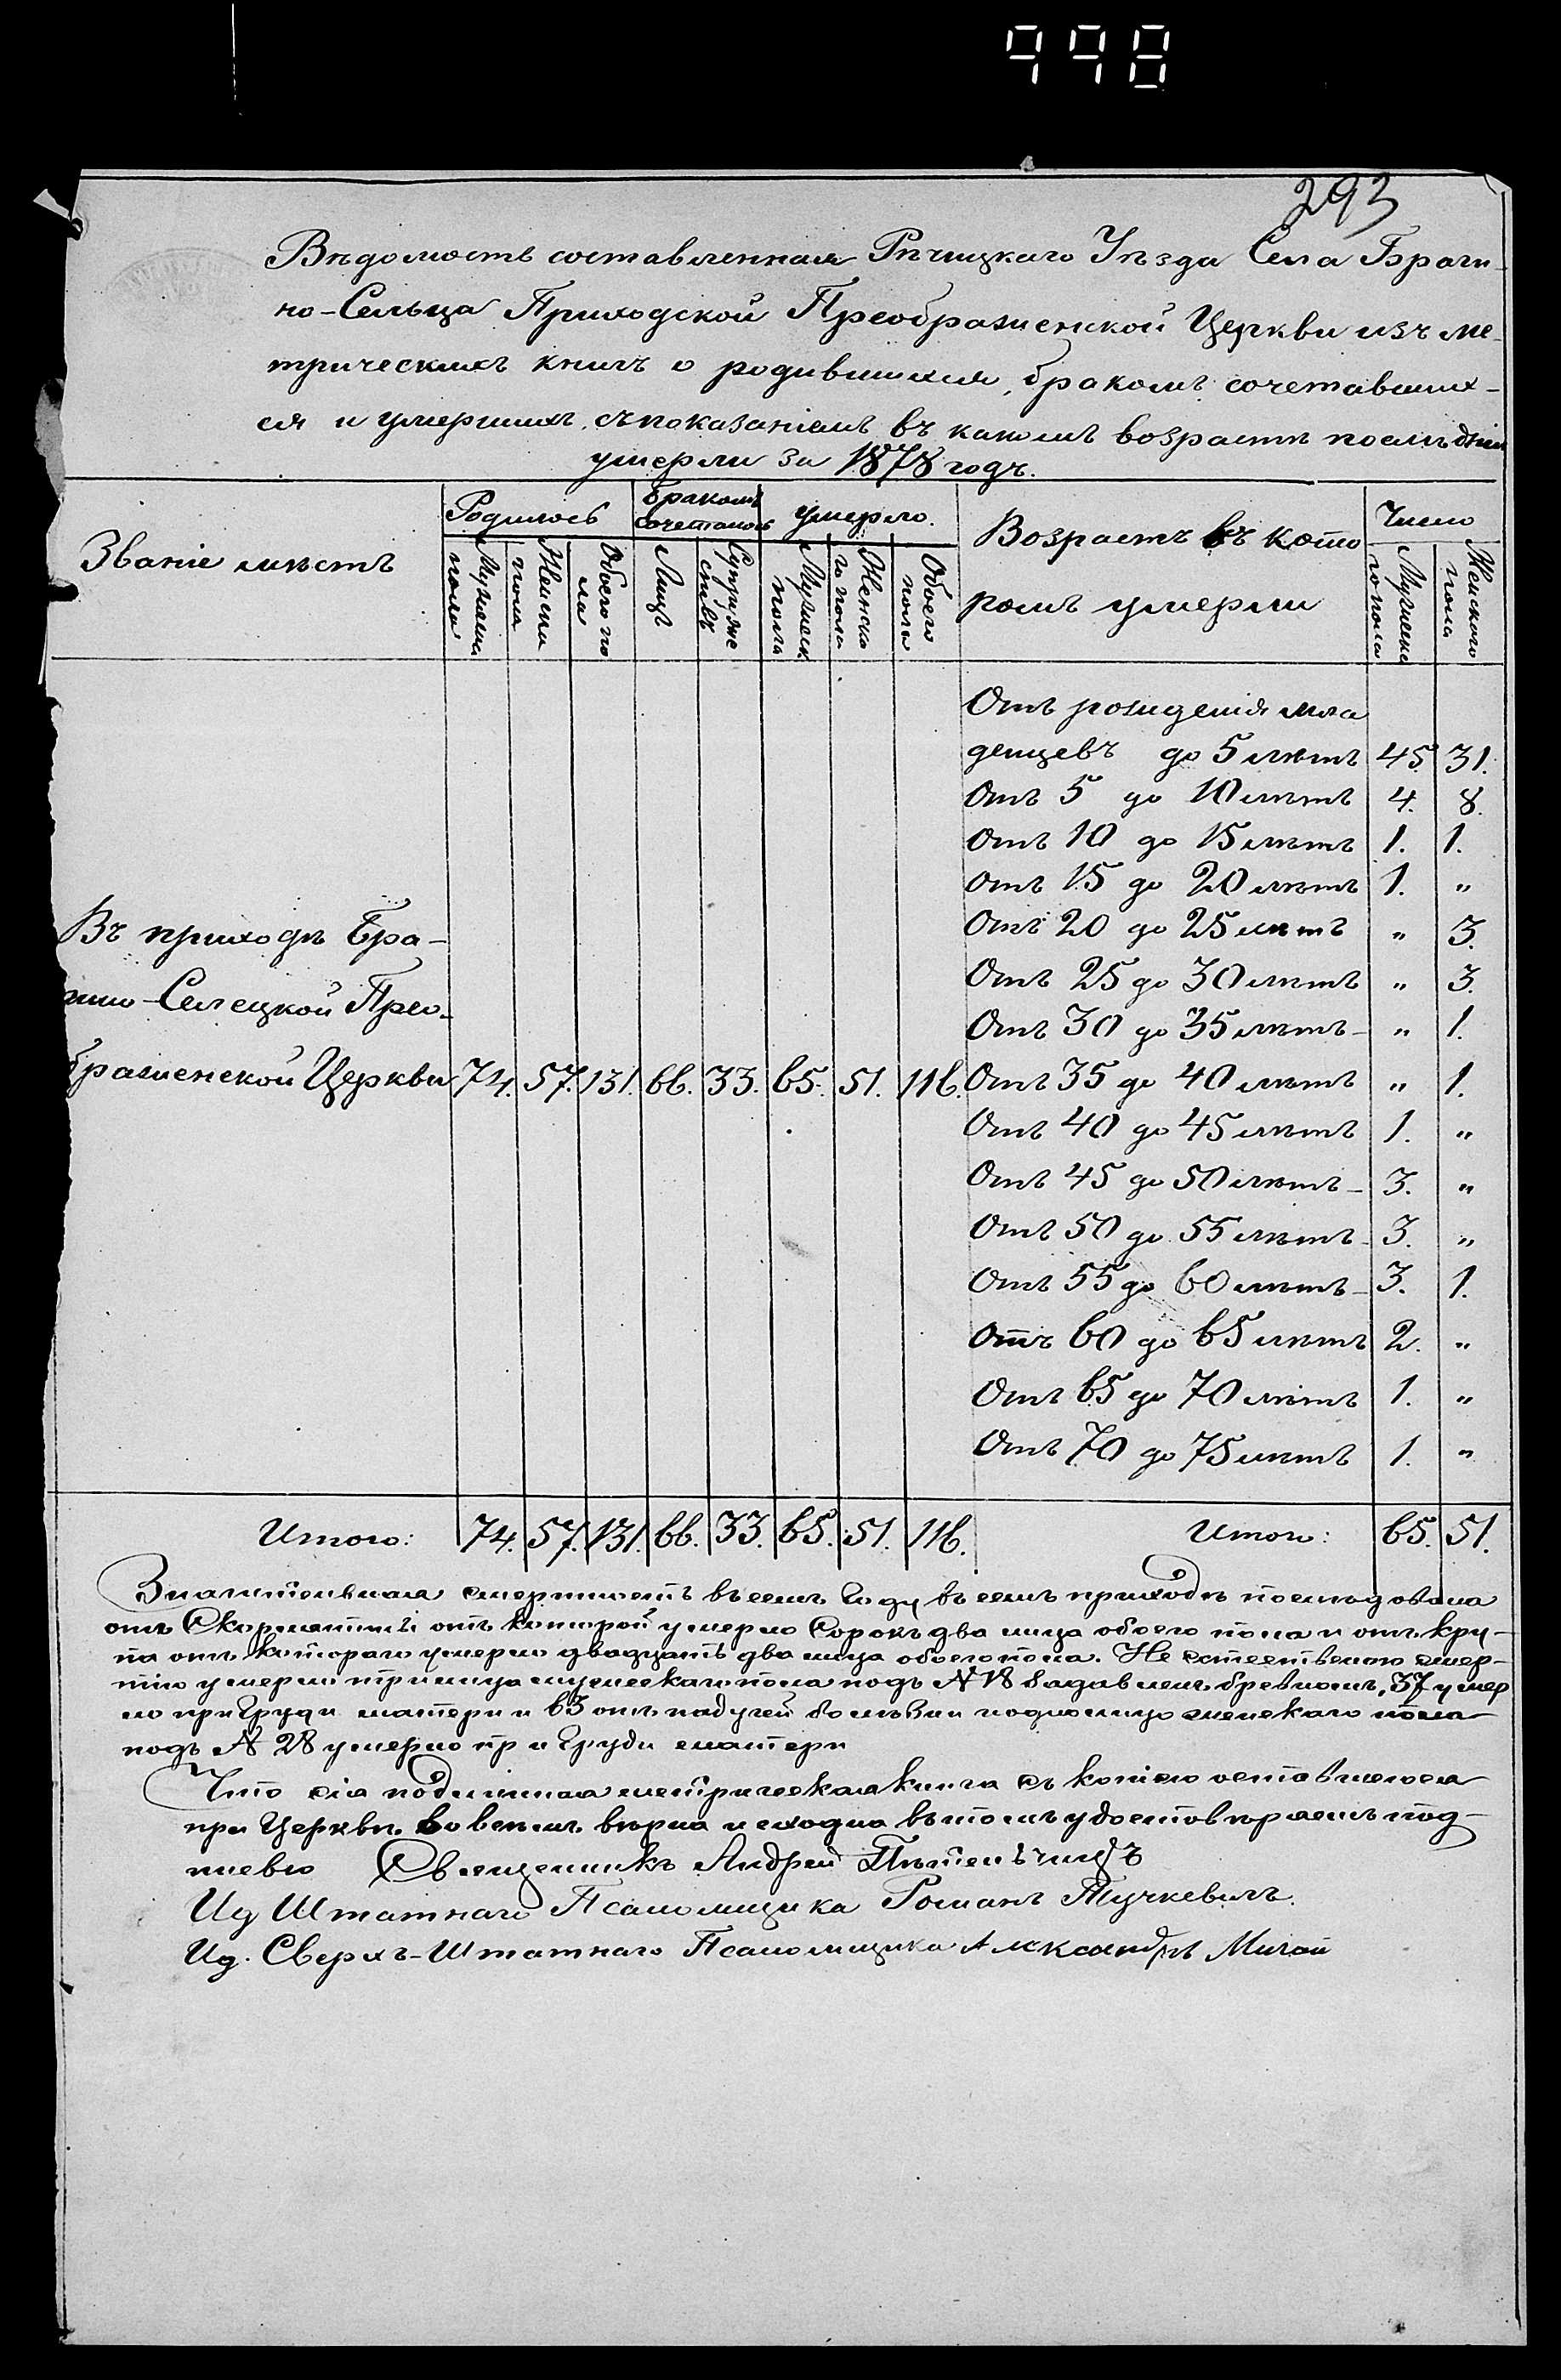 998
293
Вѣдомость составленная Рѣчицкаго Уѣзда Села Браги-
но-Сельца Приходской Преображенской Церкви изъ ме-
трическихъ книгъ о родившихся, бракомъ сочетавших-
ся и умершихъ, съ показаніемъ въ какомъ возрастѣ послѣдніи
умерли за 1878 годъ.
Званіе мѣстъ
Родилось
Бракомъ сочеталось
умерло.
Возрастъ въ кото
ромъ умерли
Число
Мужеска пола
Женска пола
Обоего по ла
Лицъ
Супруже ствъ
Мужеск пола
Женска го пола
Обоего пола
Мужеска го пола
Женскаго пола
Отъ рожденія мла
денцевъ до 5 лѣтъ 45. 31.
Отъ 5 до 10 лѣтъ 4. 8.
Отъ 10 до 15 лѣтъ 1. 1.
Отъ 15 до 20 лѣтъ 1. „
Отъ 20 до 25 лѣтъ „ 3.
Отъ 25 до 30 лѣтъ „ 3.
Отъ 30 до 35 лѣтъ - „ 1.
Въ приходѣ Бра-
гино-Селецкой Прео-
браженской Церкви 74. 57. 131. 66. 33. 65. 51. 116. Отъ 35 до 40 лѣтъ „ 1.
Отъ 40 до 45 лѣтъ 1. „
Отъ 45 до 50 лѣтъ - 3. „
Отъ 50 до 55 лѣтъ - 3. „
Отъ 55 до 60 лѣтъ - 3. 1.
Отъ 60 до 65 лѣтъ 2. „
Отъ 65 до 70 лѣтъ 1. „
Отъ 70 до 75 лѣтъ 1. „
Итого: 74. 57. 131. 66. 33. 65. 51. 116. Итого: 65. 51.
Значительная смертность въ семъ Году въ семъ приходѣ послѣдовала
отъ Скорлатины отъ которой умерло Сорокъ два лица обоего пола и отъ кру-
па отъ котораго умерло двадцать два лица обоего пола. Не естественною смер-
тію умерли три лица мужескаго пола подъ № 18 задавленъ бревномъ, 37 умер
ло при Груди матери и 63 отъ падучей болѣзни и одно лицо женскаго пола
подъ № 28 умерло при Груди матери
Что сія подлинная метрическая книга съ копіею оставшеюся
при Церквѣ во всемъ вѣрна и сходна въ томъ удостовѣряемъ под-
писью Священникъ Андрей
Ид Штатнаго Псаломщика Романъ Тучкевичъ.
Ид. Сверхъ-Штатнаго Псаломщика Александръ